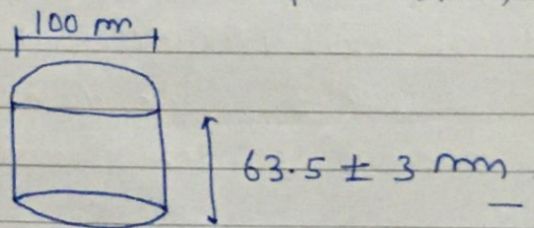 100 m
63.5 ± 3 mm